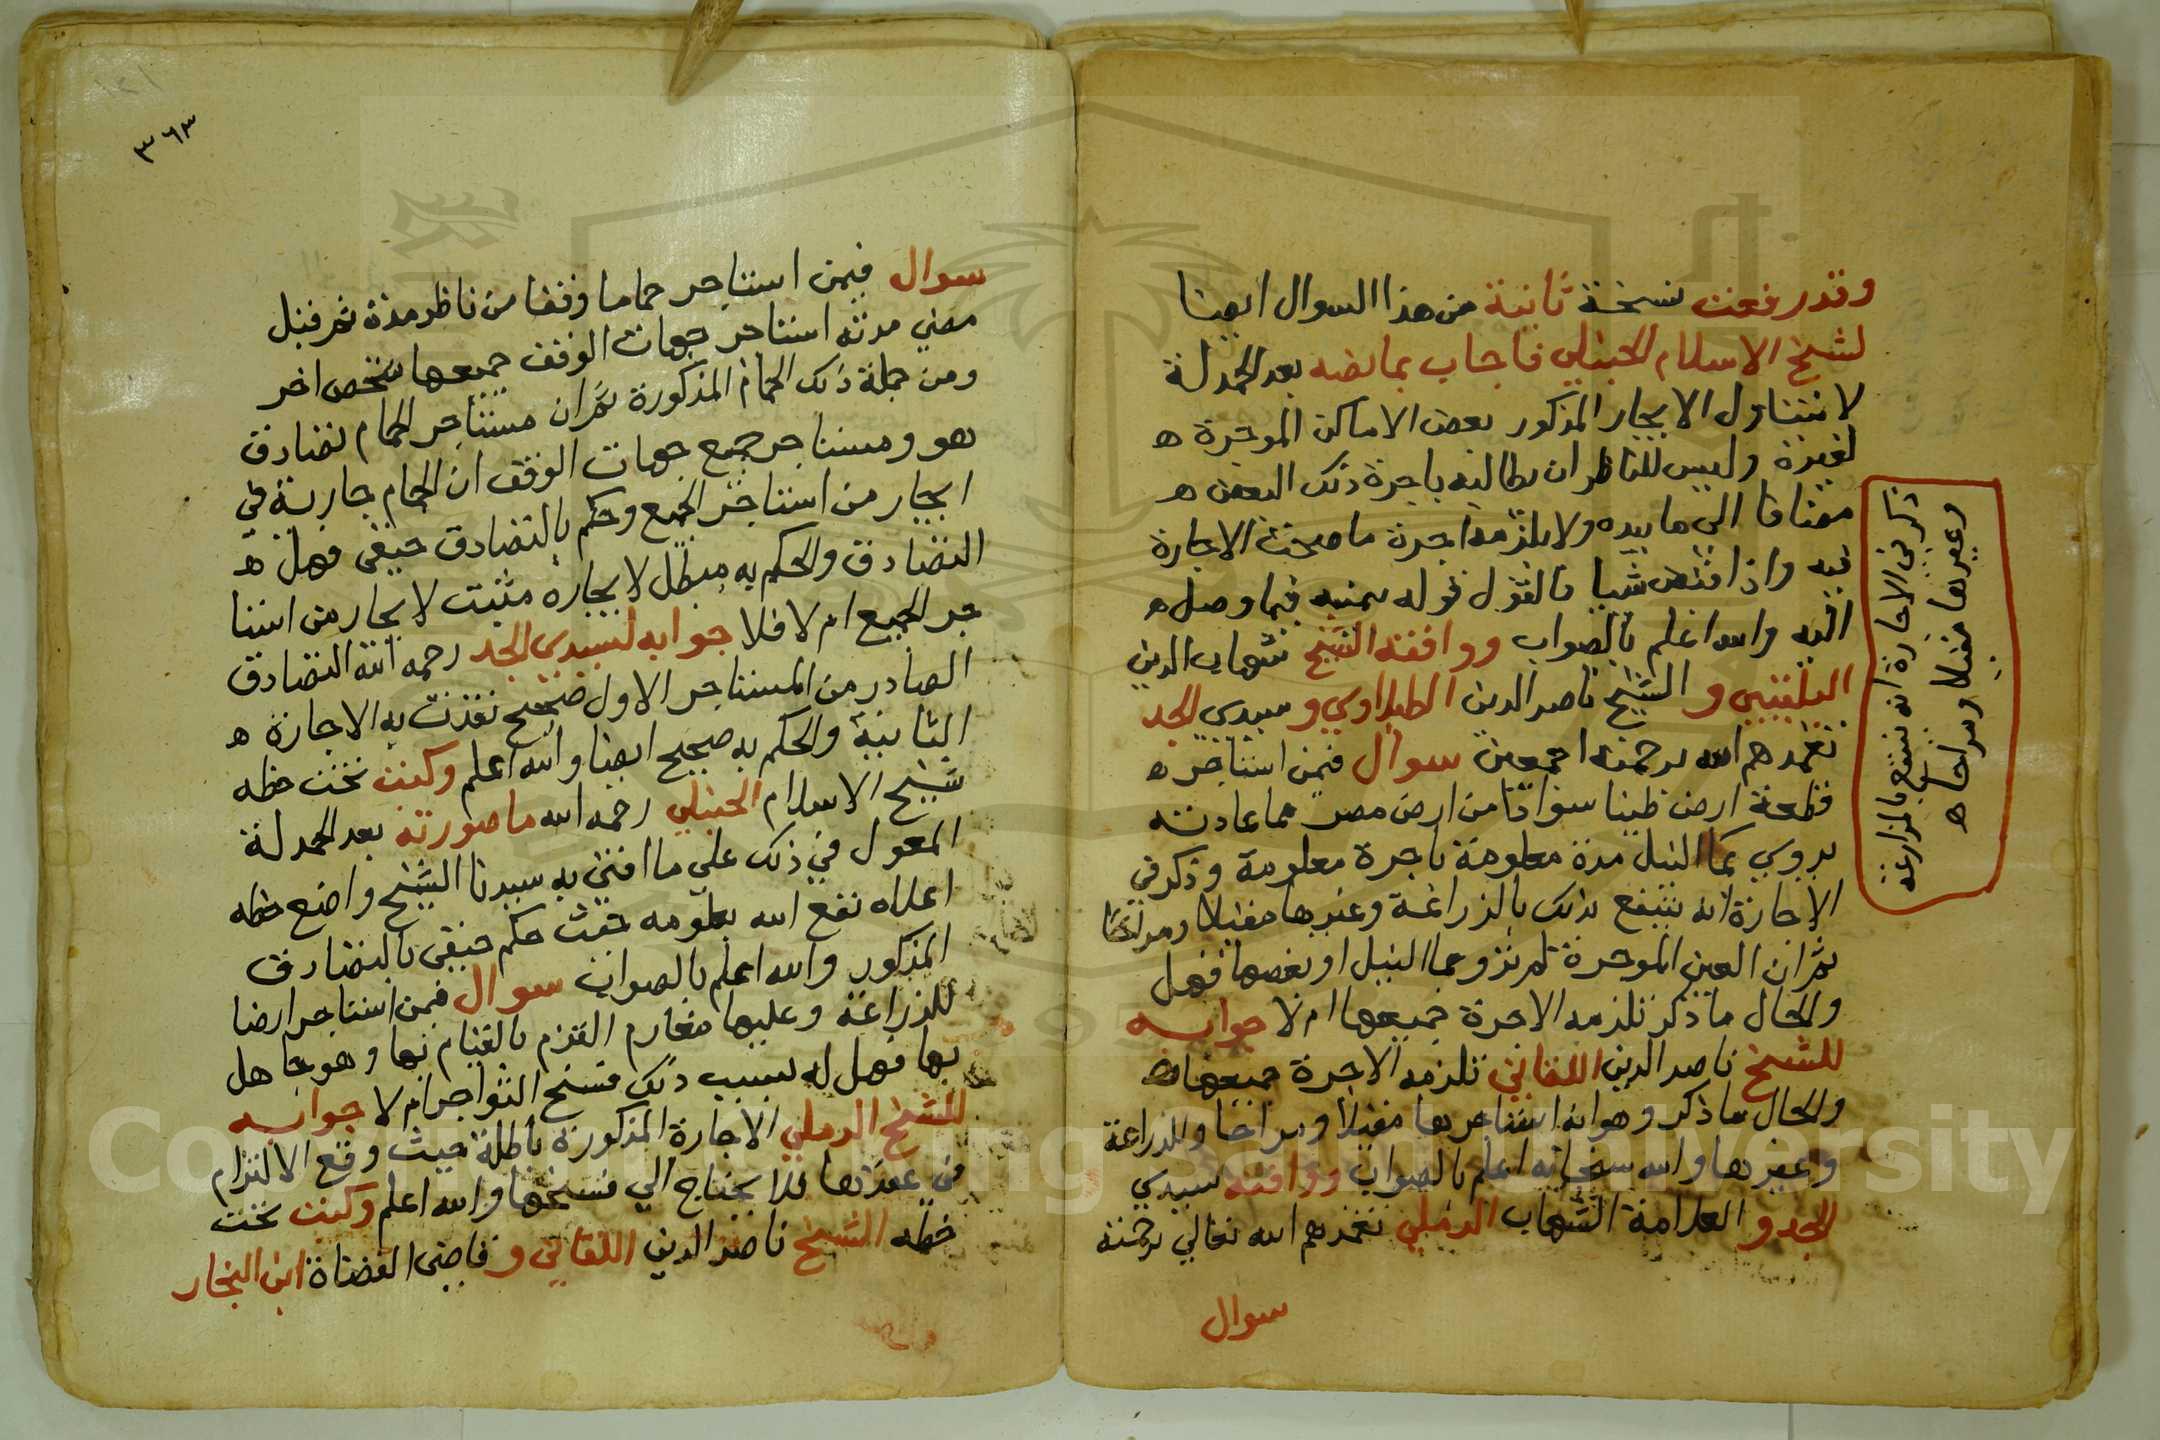 وقد رفعت نسخة ثانية من هذا السوال ايضا
لشيخ الاسلام الحنبلي فاجاب بما نصه بعد الحمدلة
لا يتناول الايجار المذكور بعض الاماكن الموجرة ه
لغيره وليس للناظر ان يطالبه باجرة ذلك البعض ه
مضافا الى ما بيده ولا يلزمه اجرة ما صحت الاجارة
فيه واذا قبض شيا فالقول قوله بيمنيه فيما وصل ه
اليه والله اعلم بالصواب ووافقه الشيخ شهاب الدين
البلقيني و الشيخ ناصر الدين الطبلاوي و سيدي الجد
تغمدهم الله برحمته اجمعين سوال فيمن استاجر ه
قطعة ارض طينا سوادا من ارض مصر مما عادته
يروي بما النيل مدة معلومة باجرة معلومة وذكر في
الاجارة انه ينتفع بذلك بالزراعة وغيرها مقيلا ومراحا
ثم ان العين الموجرة لم يروها النيل او بعضها فهل
والحال ما ذكر تلزمه الاجرة جميعها ام لا جوابه
للشيخ ناصر الدين اللقاني تلزمه الاجرة جميعها
والحال ما ذكر وهو انه استاجرها مقيلا ومراحا وللزراعة
وغيرها والله سبحانه اعلم بالصواب ووافقه سيدي
الجد و العلامة الشهاب الرملي تغمدهم الله تعالي برحمته
سوال
ذكر في الاجارة انه ينتفع بالمزارعة
وغيرها مقيلا ومراحا ه
٣٦٣
سوال فيمن استاجر حماما وقفا من ناظر مدة ثم قبل
مضي مدته استاجر جهات الوقف جميعها شخص اخر
ومن جملة ذلك الحمام المذكورة ثم ان مستاجر الحمام تصادق
هو ومستاجر جميع جهات الوقف ان الحمام جارية في
ايجار من استاجر الجميع وحكم بالتصادق حنفي فهل ه
التصادق والحكم به مبطل لايجاره مثبت لايجار من استا
جر الجميع ام لا فلا جوابه لسيدي الجد رحمه الله التصادق
الصادر من المستاجر الاول صحيح نفذت به الاجازة ه
الثانية والحكم به صحيح ايضا والله اعلم وكتب تحت خطه
شيخ الاسلام الحنبلي رحمه الله ما صورته بعد الحمدلة
المعول في ذلك علي ما افتي به سيدنا الشيخ واضع خطه
اعلاه نفع الله بعلومه حيث حكم حنفي بالتصادق
المذكور والله اعلم بالصواب سوال فيمن استاجر ارضا
للزراعة وعليها مغارم التزم بالقيام بها وهو جاهل
بها فهل له بسبب ذلك فسخ التواجر ام لا جوابه
للشيخ الرملي الاجارة المذكورة باطلة حيث وقع الالتزام
في عقدتها فلا يحتاج الي فسخها والله اعلم وكتب تحت
خطه الشيخ ناصر الدين اللقاني و قاضي القضاة ابن النجار